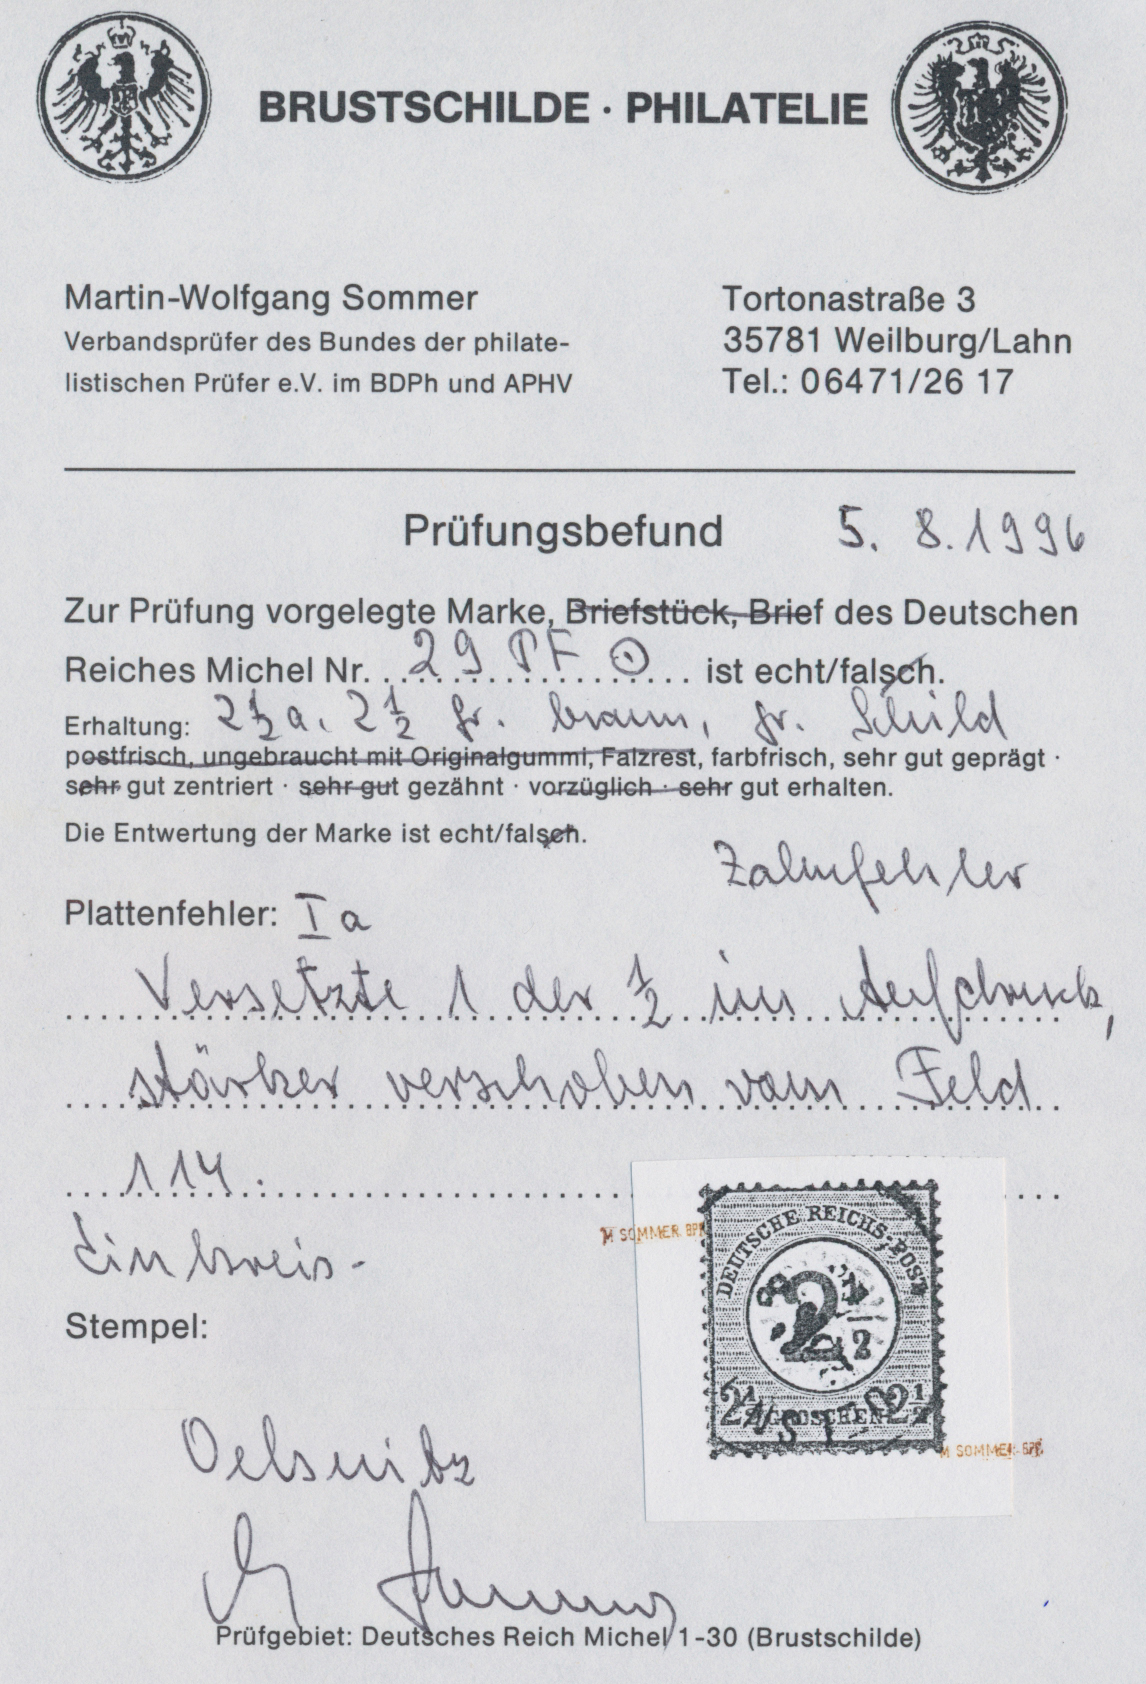 BRUSTSCHILDE · PHILATELIE
Martin-Wolfgang Sommer
Verbandsprüfer des Bundes der philate-
listischen Prüfer e.V. im BDPh und APHV
Tortonastraße 3
35781 Weilburg/Lahn
Tel.: 06471/26 17
Prüfungsbefund 5. 8. 1996
Zur Prüfung vorgelegte Marke, Briefstück, Brief des Deutschen
Reiches Michel Nr. 29 PF ⊙ ist echt/falsch.
Erhaltung: 2½ a. 2½ gr. braun, gr. Schild
postfrisch, ungebraucht mit Originalgummi, Falzrest, farbfrisch, sehr gut geprägt ·
sehr gut zentriert · sehr gut gezähnt · vorzüglich · sehr gut erhalten.
Die Entwertung der Marke ist echt/falsch.
Zahnfehler
Plattenfehler: I a
Versetzte 1 der ½ im Aufdruck,
stärker verschoben vom Feld
114.
Einkreis-
Stempel:
Oelsnitz
M SOMMER BPP
DEUTSCHE REICHS-POST
2 1/2
2½ GROSCHEN 2½
M SOMMER BPP
Prüfgebiet: Deutsches Reich Michel 1-30 (Brustschilde)